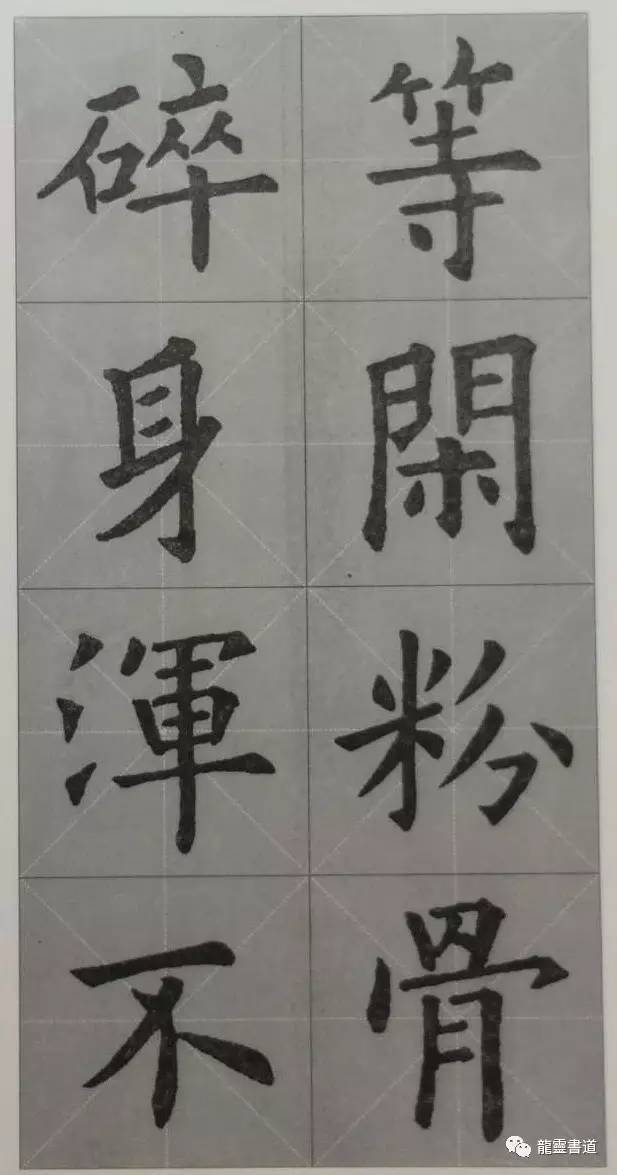 等閑粉骨
碎身渾不
龍靈書道